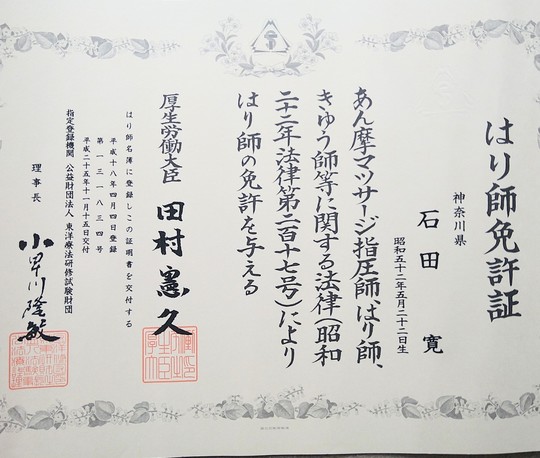 はり師免許証
神奈川県
石田 寛
昭和五十二年五月二十二日生
あん摩マツサージ指圧師、はり師、
きゆう師等に関する法律（昭和
二十二年法律第二百十七号）により
はり師の免許を与える
厚生労働大臣 田村憲久
はり師名簿に登録しこの証明書を交付する
平成十八年四月四日登録
第一三一八三四号
平成二十五年十一月十五日交付
指定登録機関 公益財団法人 東洋療法研修試験財団
理事長 小早川隆敏